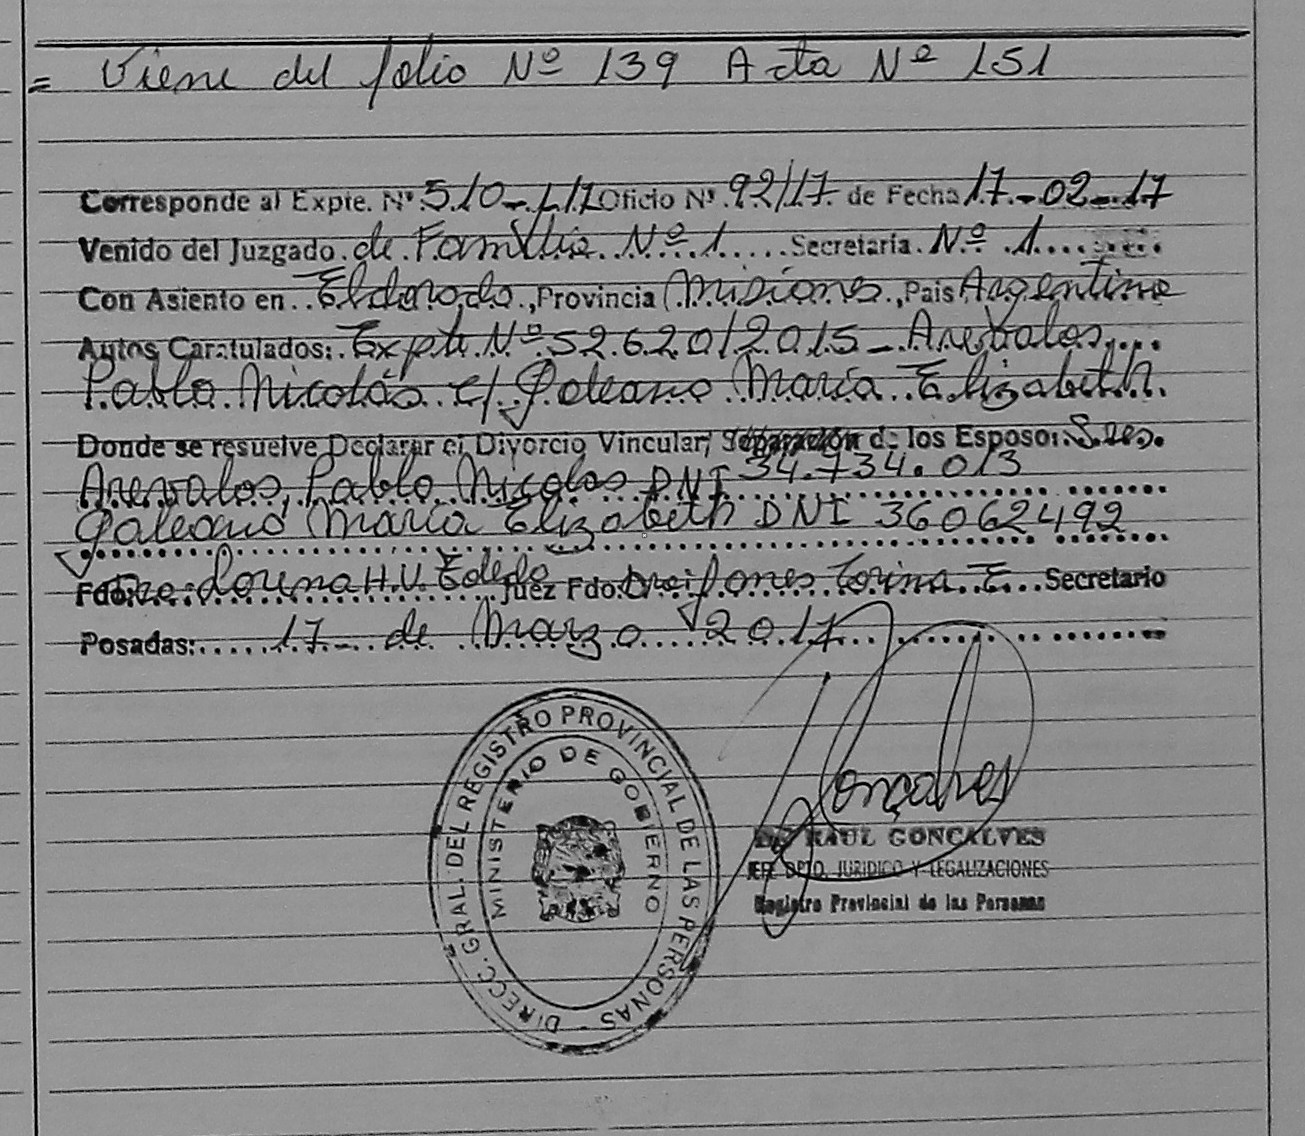 = Viene del folio Nº 139 Acta Nº 151
Corresponde al Expte. Nº 510- Oficio Nº 92/17. de Fecha 17-02-17
Venido del Juzgado de Familia Nº 1 Secretaría. Nº 1
Con Asiento en Eldorado, Provincia Misiones, País Argentina
Autos Caratulados: Expte Nº 52620/2015 - Arevalos
Pablo Nicolás c/ Galeano María Elizabeth.
Donde se resuelve Declarar el Divorcio Vincular, de los Esposos: Sres.
Arevalos, Pablo Nicolas DNI 34.734.013
Galeano María Elizabeth DNI 36062492
Fdo: H.V. Toledo Juez Fdo: E. Secretario
Posadas: 17 de Marzo 2017
DIRECC. GRAL. DEL REGISTRO PROVINCIAL DE LAS PERSONAS -
MINISTERIO DE GOBIERNO
Gonçalves
RAUL GONCALVES
JEFE DPTO. JURIDICO Y LEGALIZACIONES
Registro Provincial de las Personas